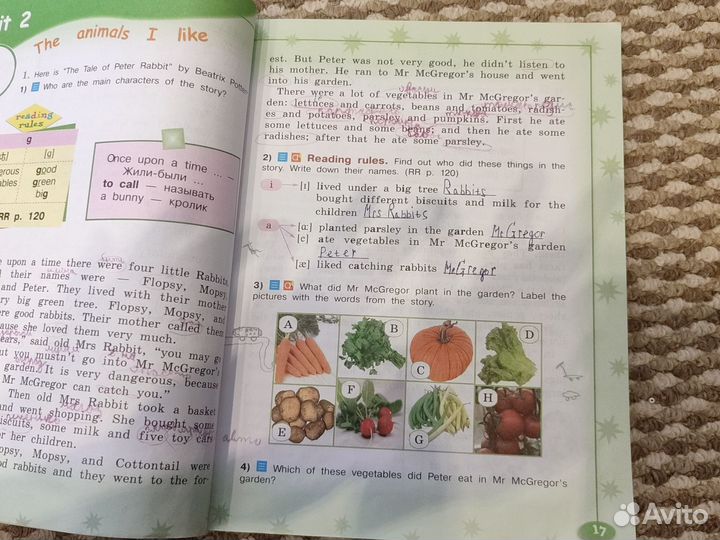 it 2
The animals I like
1. Here is "The Tale of Peter Rabbit" by Beatrix Potter.
1) Who are the main characters of the story?
reading
rules
g
[g]
good
green
big
RR p. 120
Once upon a time ... —
Жили-были ...
to call — называть
a bunny — кролик
upon a time there were four little Rabbits,
their names were — Flopsy, Mopsy,
and Peter. They lived with their mother
big green tree. Flopsy, Mopsy, and
were good rabbits. Their mother called them
because she loved them very much.
said old Mrs Rabbit, "you may go
but you mustn't go into Mr McGregor's
garden. It is very dangerous, because
Mr McGregor can catch you."
Then old Mrs Rabbit took a basket
and went shopping. She bought some
biscuits, some milk and five toy cars
for her children.
Mopsy, and Cottontail were
good rabbits and they went to the for-
est. But Peter was not very good, he didn't listen to
his mother. He ran to Mr McGregor's house and went
into his garden.
There were a lot of vegetables in Mr McGregor's gar-
den: lettuces and carrots, beans and tomatoes, radish-
es and potatoes, parsley and pumpkins. First he ate
some lettuces and some beans; and then he ate some
radishes; after that he ate some parsley.
2) Reading rules. Find out who did these things in the
story. Write down their names. (RR p. 120)
i [ɪ] lived under a big tree Rabbits
bought different biscuits and milk for the
children Mrs Rabbits
a [ɑː] planted parsley in the garden McGregor
[e] ate vegetables in Mr McGregor's garden
Peter
[æ] liked catching rabbits McGregor
3) What did Mr McGregor plant in the garden? Label the
pictures with the words from the story.
A
B
C
D
E
F
G
H
4) Which of these vegetables did Peter eat in Mr McGregor's
garden?
17
Avito